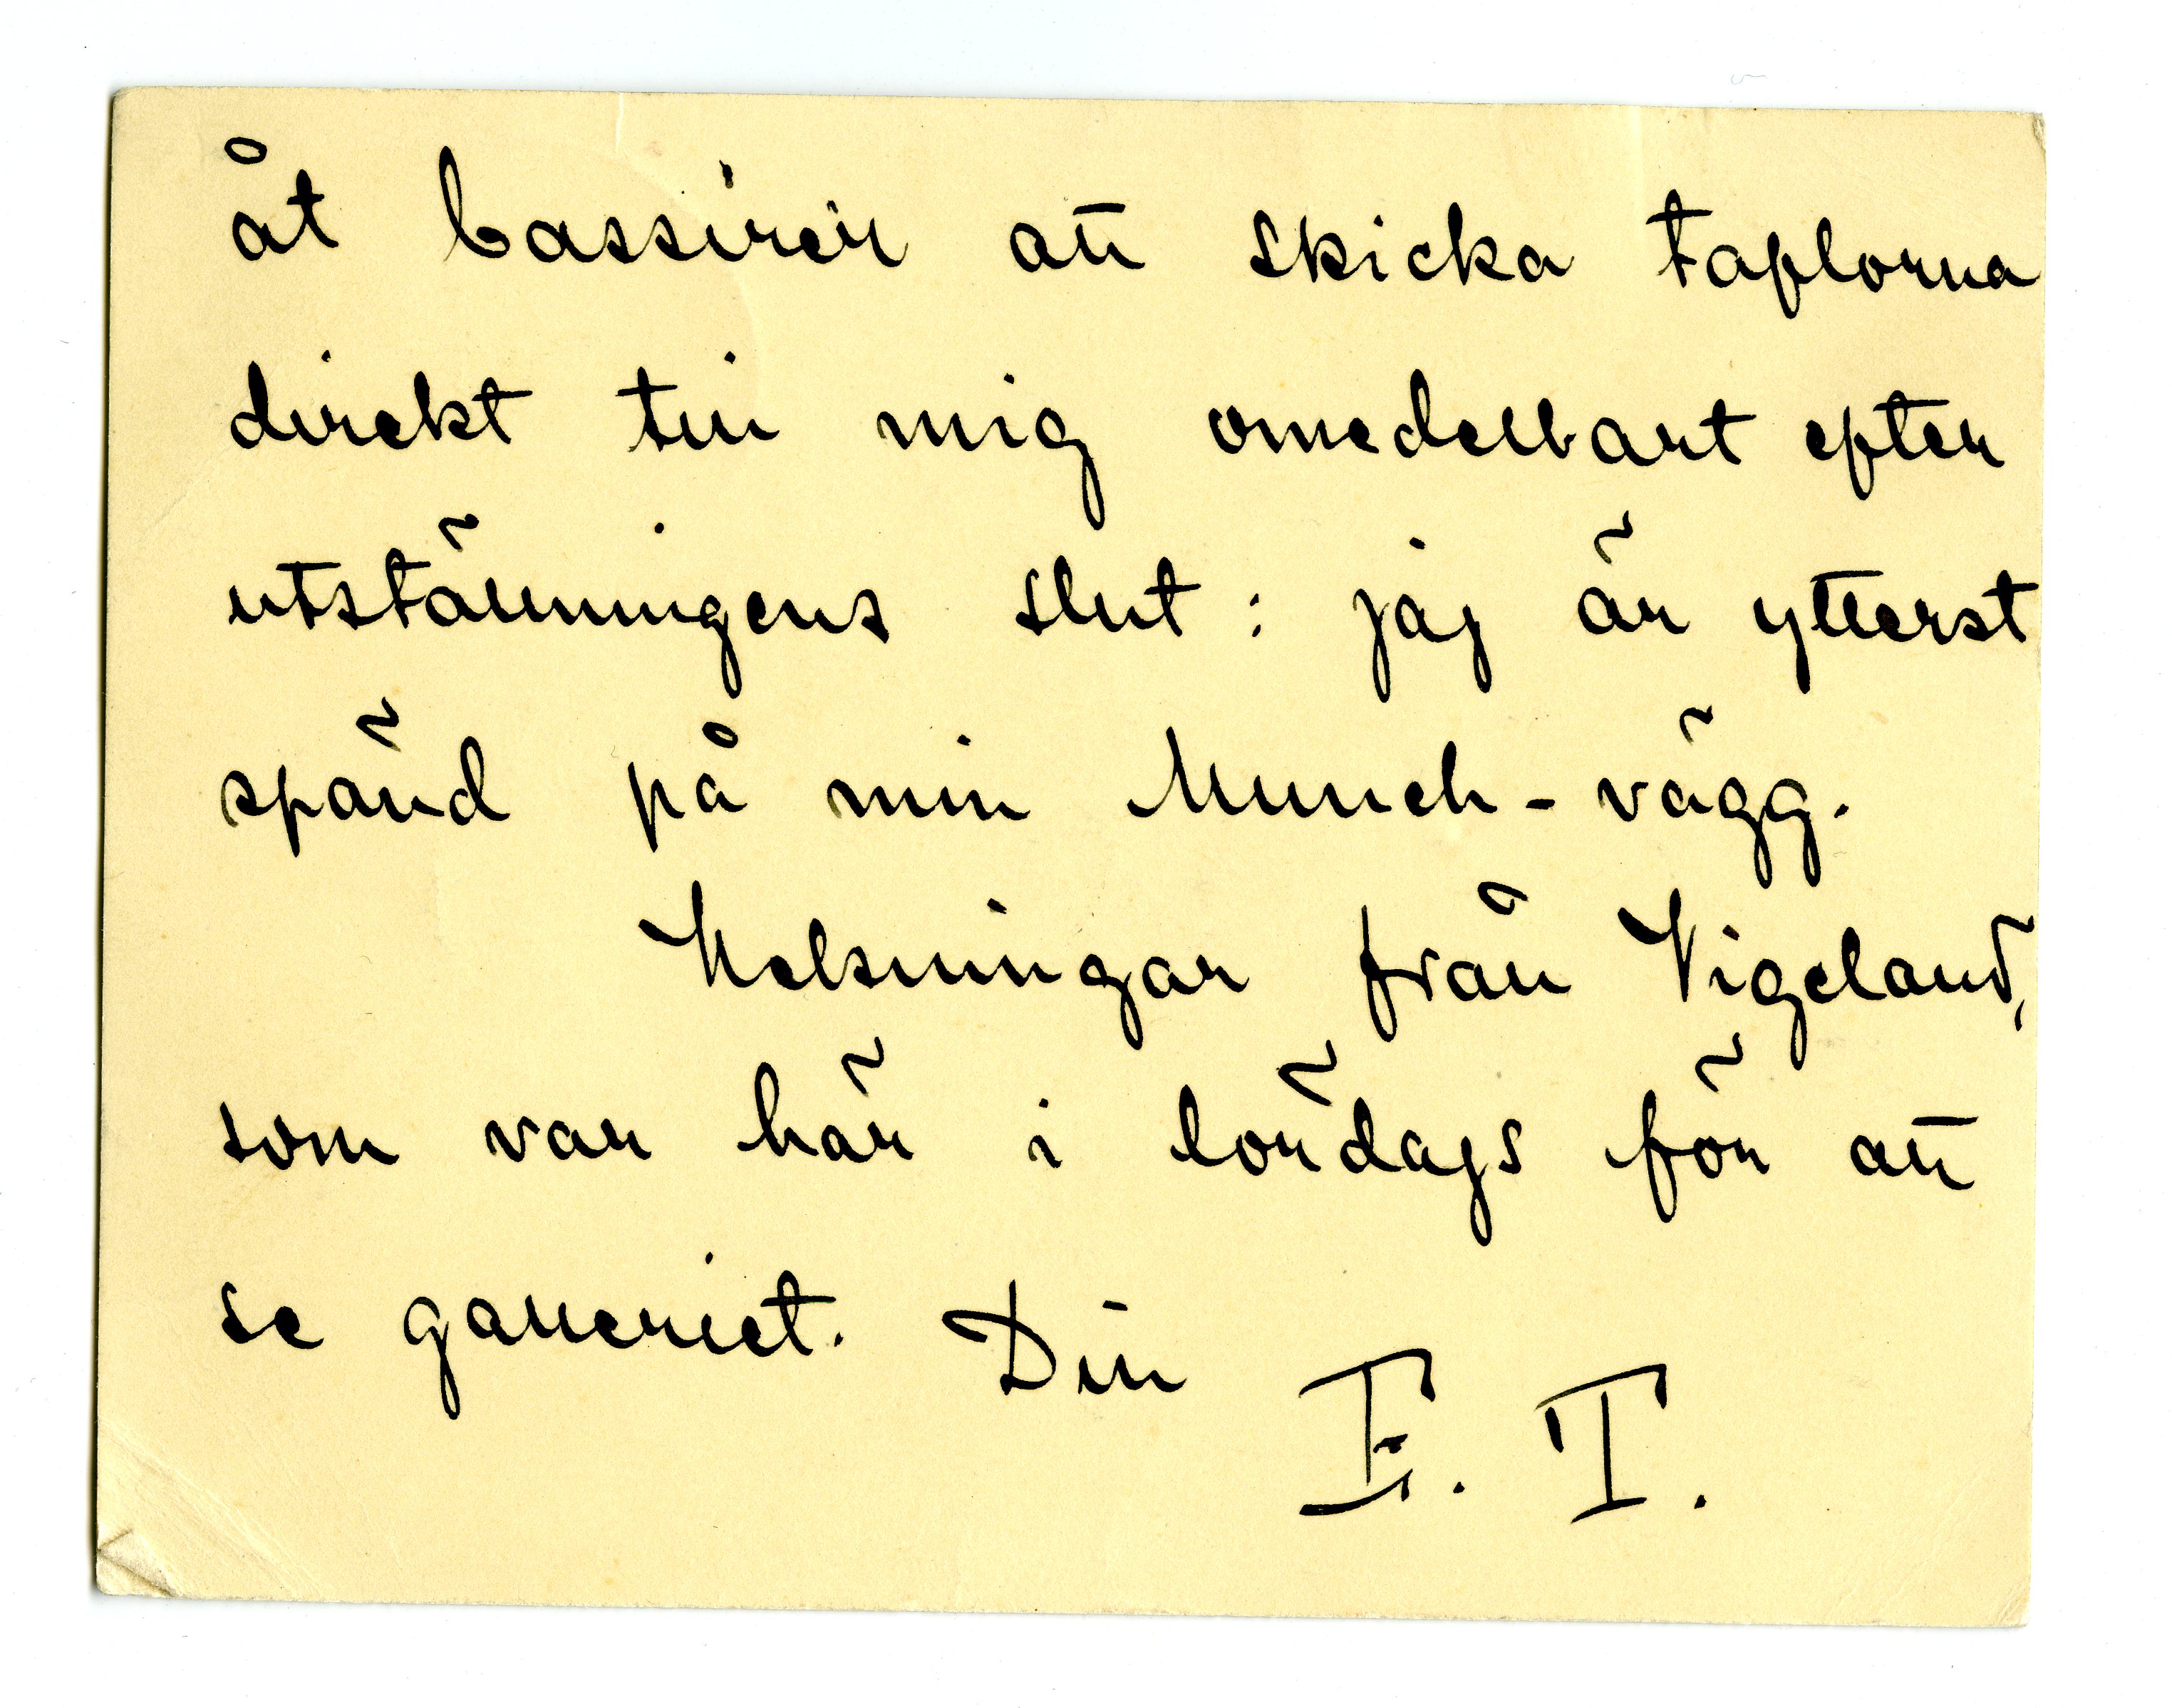 åt Cassirer att skicka taflorna
direkt till mig omedelbart efter
utställningens slut: jag är ytterst
spänd på min Munch-vägg.
Helsningar från Vigeland,
som var här i lördags för att
se galleriet. Din E. T.